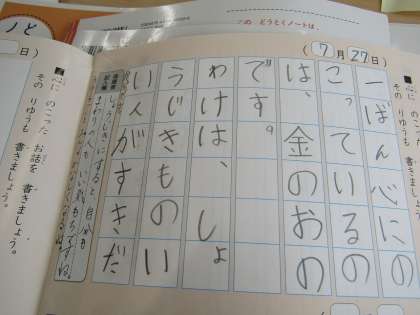 このどうとくノートは、
ノと
(7月27日)
心に のこった お話を 書きましょう。
その りゆうも 書きましょう。
一ばん心にの
こっているの
は、金のおの
です。
わけは、しょ
うじきものい
い人がすきだ
しょうじきにすると自分も
まわりの人もいい気もちですね。
日)
心に のこった お話を 書きましょう。
その りゆうも 書きましょう。